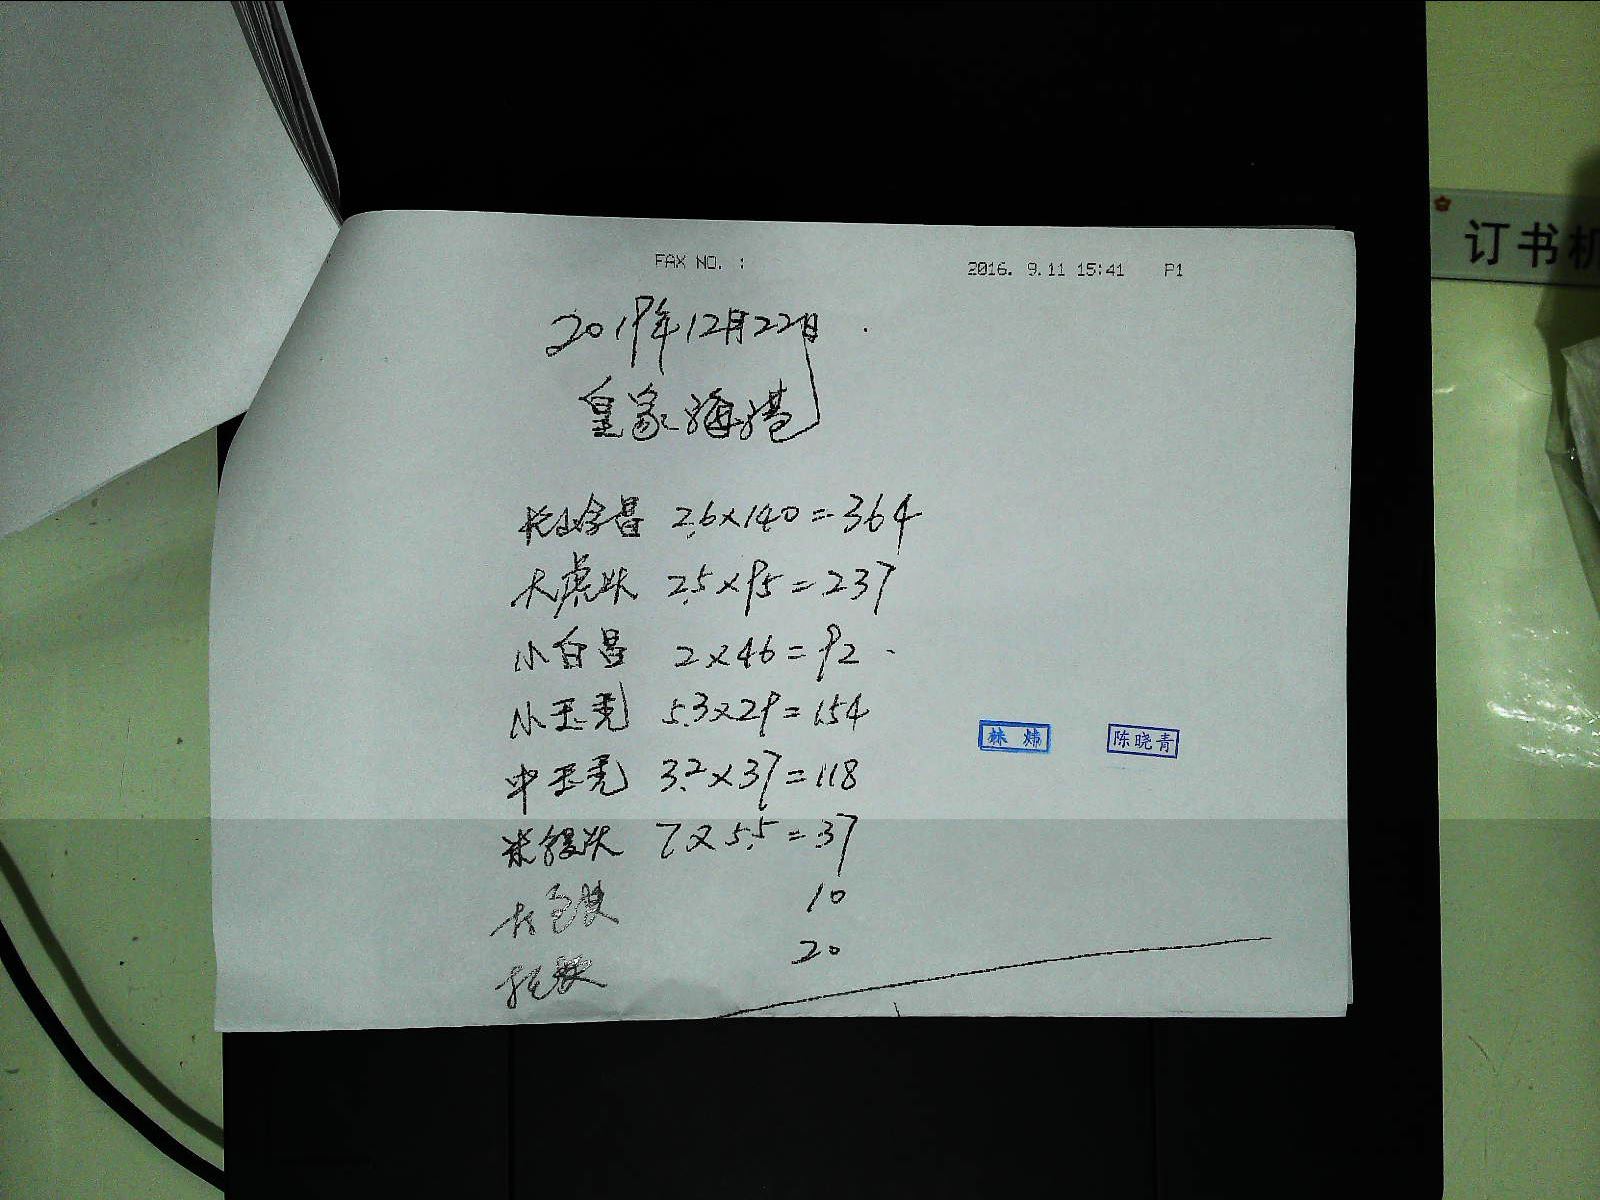 FAX NO. :
2016. 9.11 15:41 P1
2019年12月22日
皇家海港
2.6×140=364
大虎 2.5×95=237
小白昌 2×46=92
小玉秃 5.3×29=154
中玉秃 3.2×37=118
7×5.5=37
10
20
林 炜
陈晓青
订书机